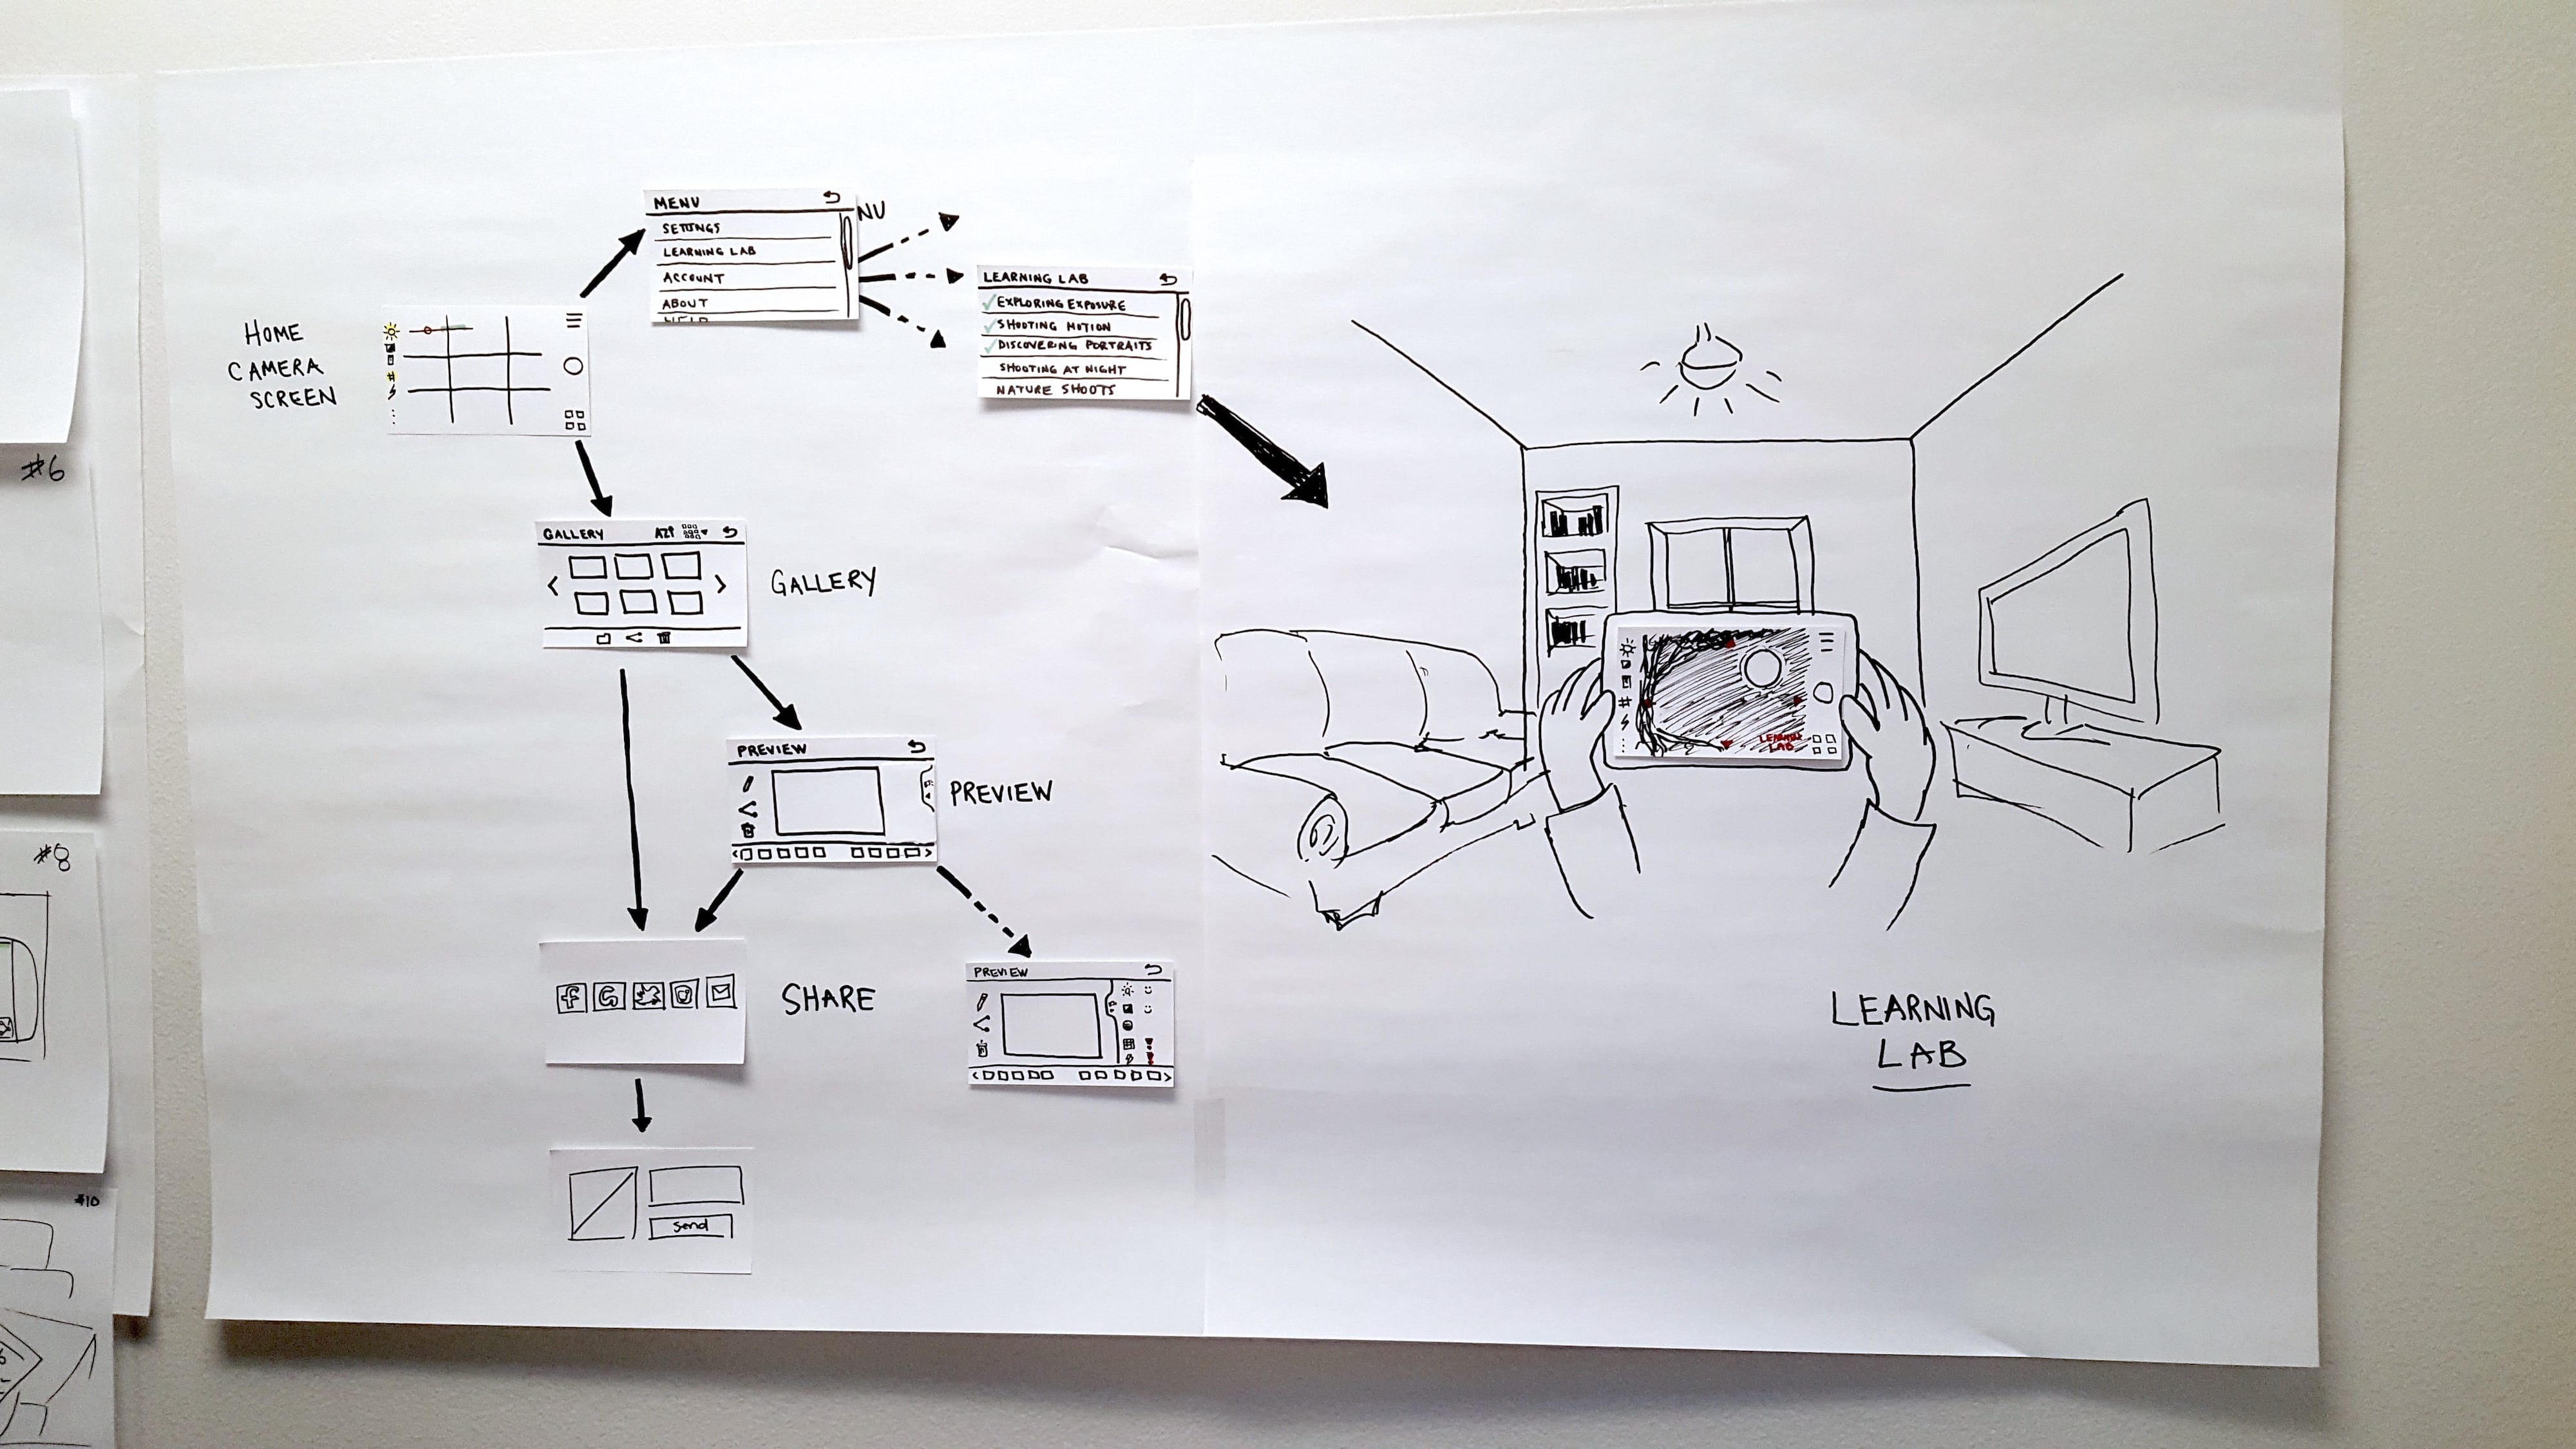 #6
#8
#10
HOME
CAMERA
SCREEN
MENU
NU
SETTINGS
LEARNING LAB
ACCOUNT
ABOUT
LEARNING LAB
EXPLORING EXPOSURE
SHOOTING MOTION
DISCOVERING PORTRAITS
SHOOTING AT NIGHT
NATURE SHOOTS
GALLERY
GALLERY
PREVIEW
PREVIEW
SHARE
PREVIEW
Send
LEARNING
LAB
LEARNING
LAB